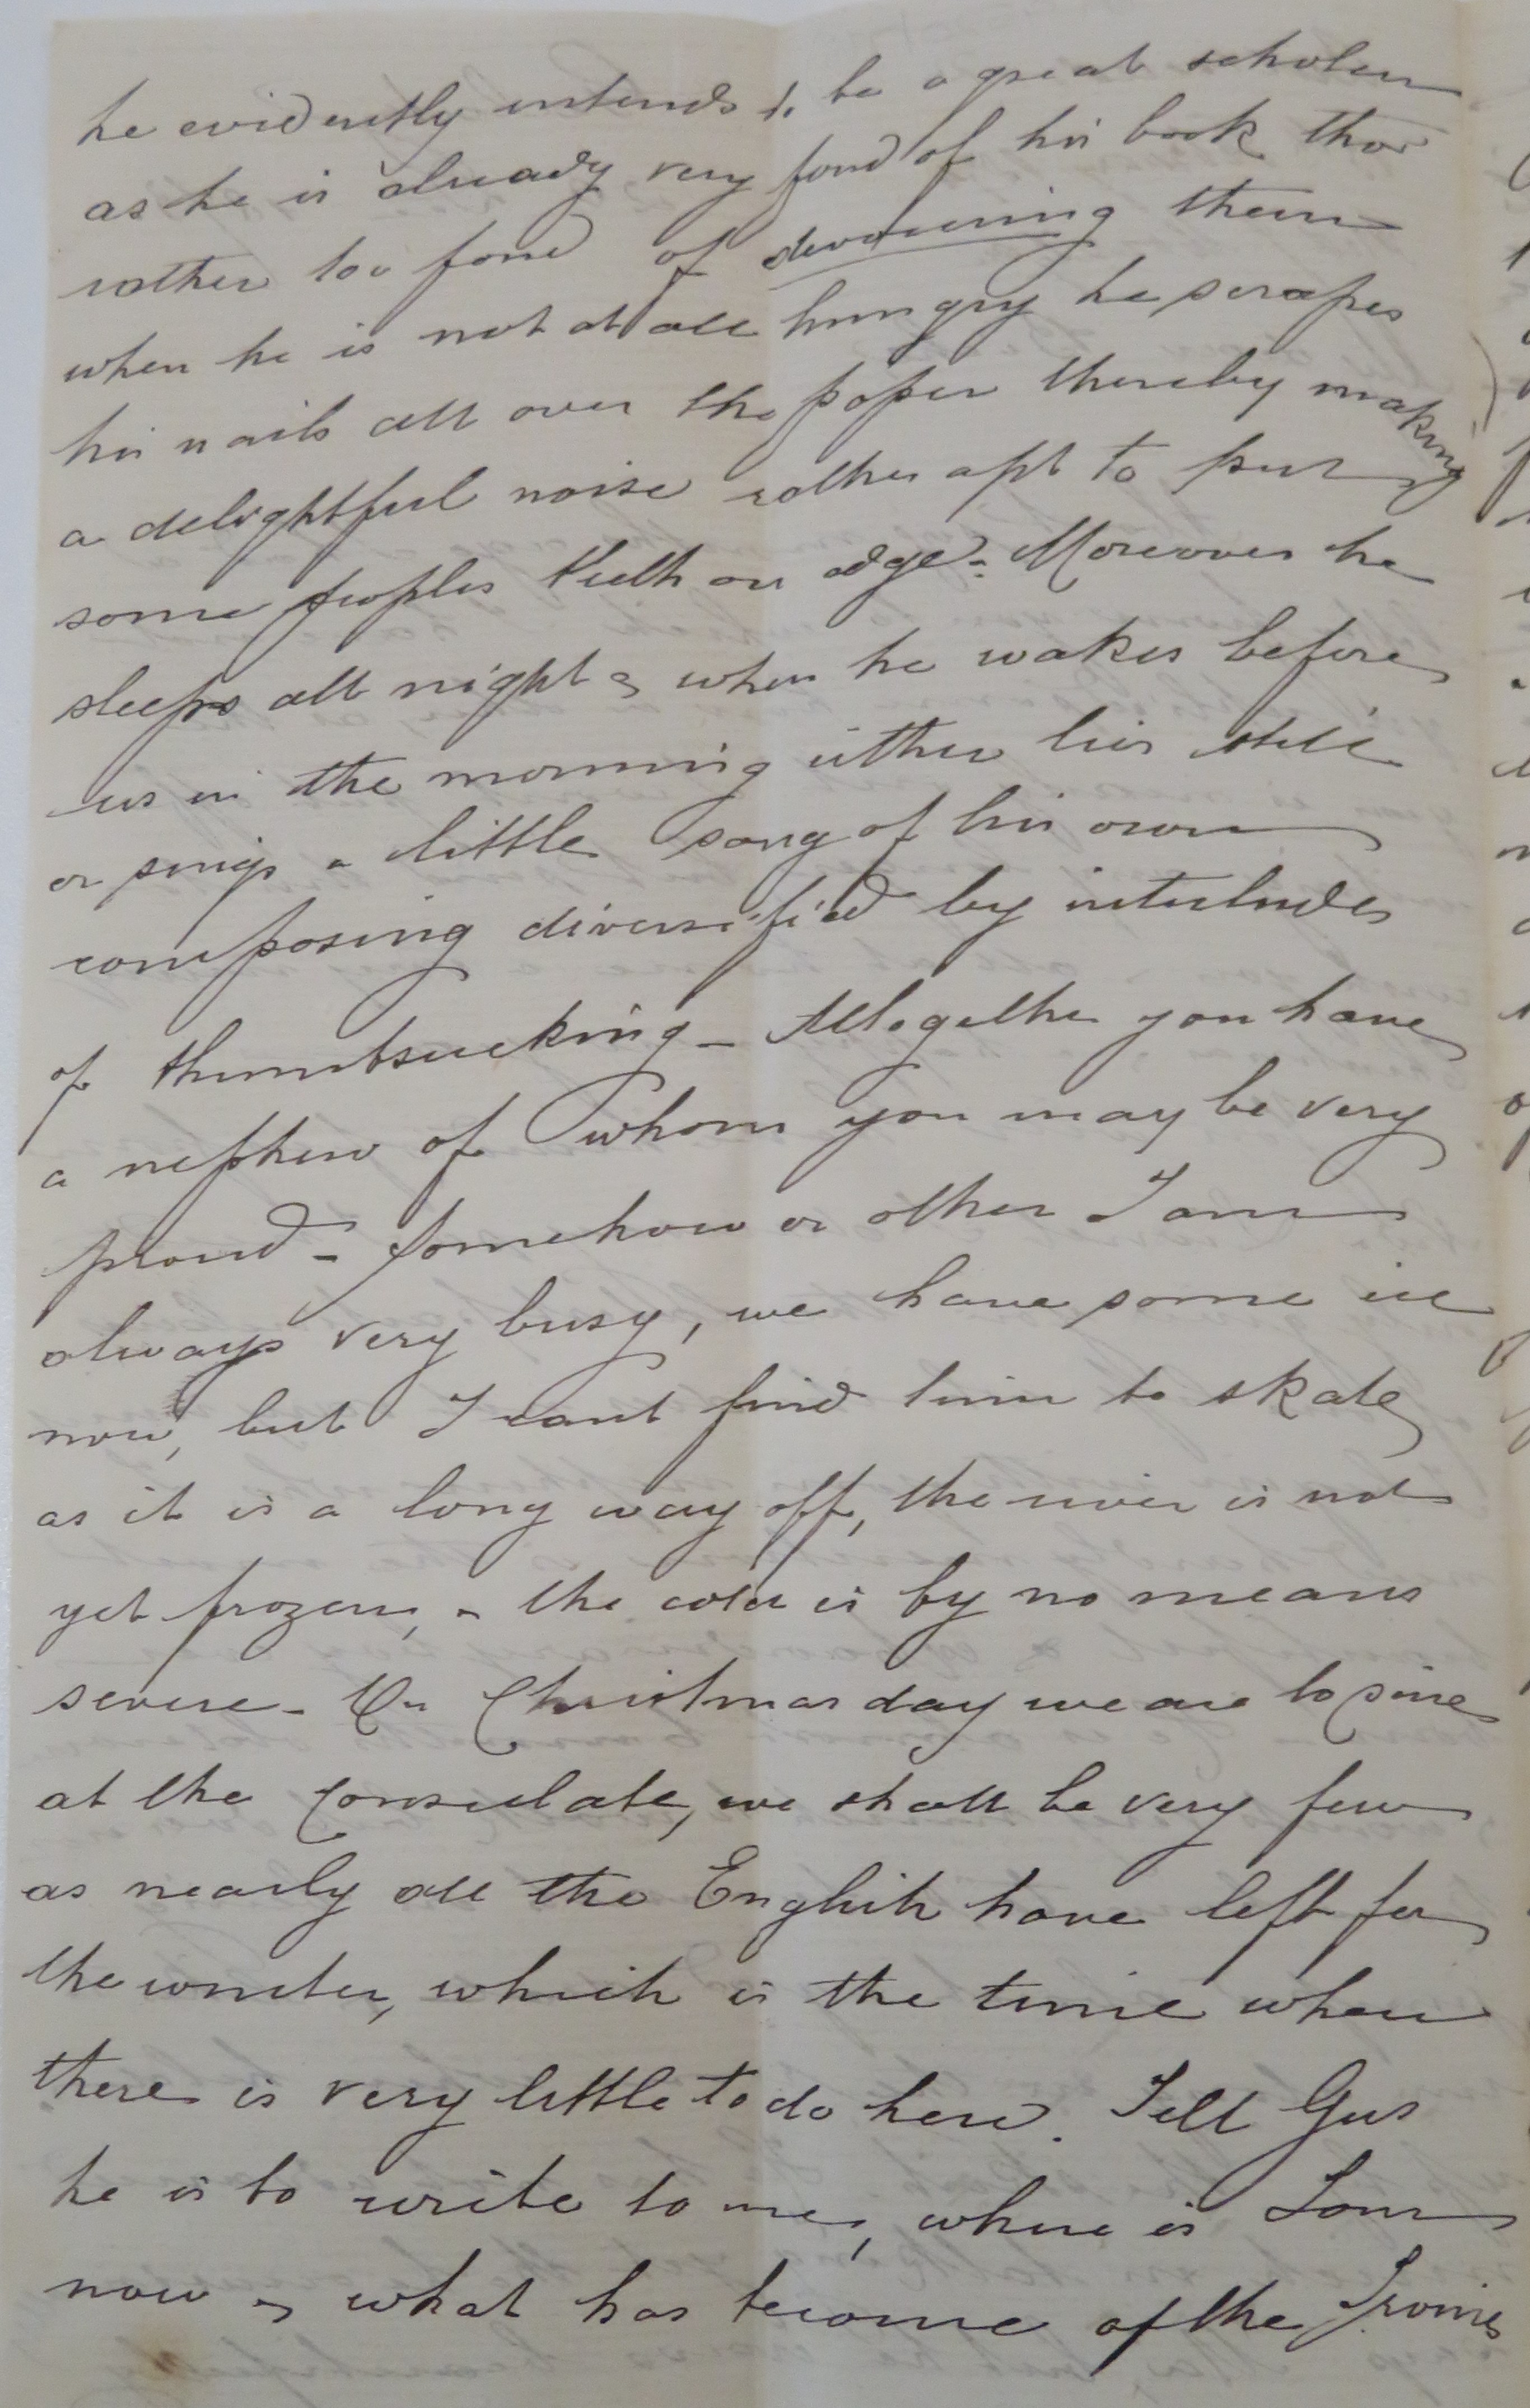 he evidently intends to be a great scholar
as he is already very fond of his book tho'
rather too fond of devouring them
when he is not at all hungry he scrapes
his nails all over the paper thereby making
a delightful noise rather apt to put
some peoples teeth on edge. Moreover he
sleeps all night & when he wakes before
us in the morning either lies still
or sings a little song of his own
composing diversified by interludes
of thumbsucking - Altogether you have
a nephew of whom you may be very
proud - Somehow or other I am
always very busy, we have some ice
now, but I cant find time to skate
as it is a long way off, the river is not
yet frozen, & the cold is by no means
severe - On Christmas day we are to dine
at the Consulate, we shall be very few
as nearly all the English have left for
the winter, which is the time when
there is very little to do here. Tell Gus
he is to write to me, where is Tom
now & what has become of the Irvines